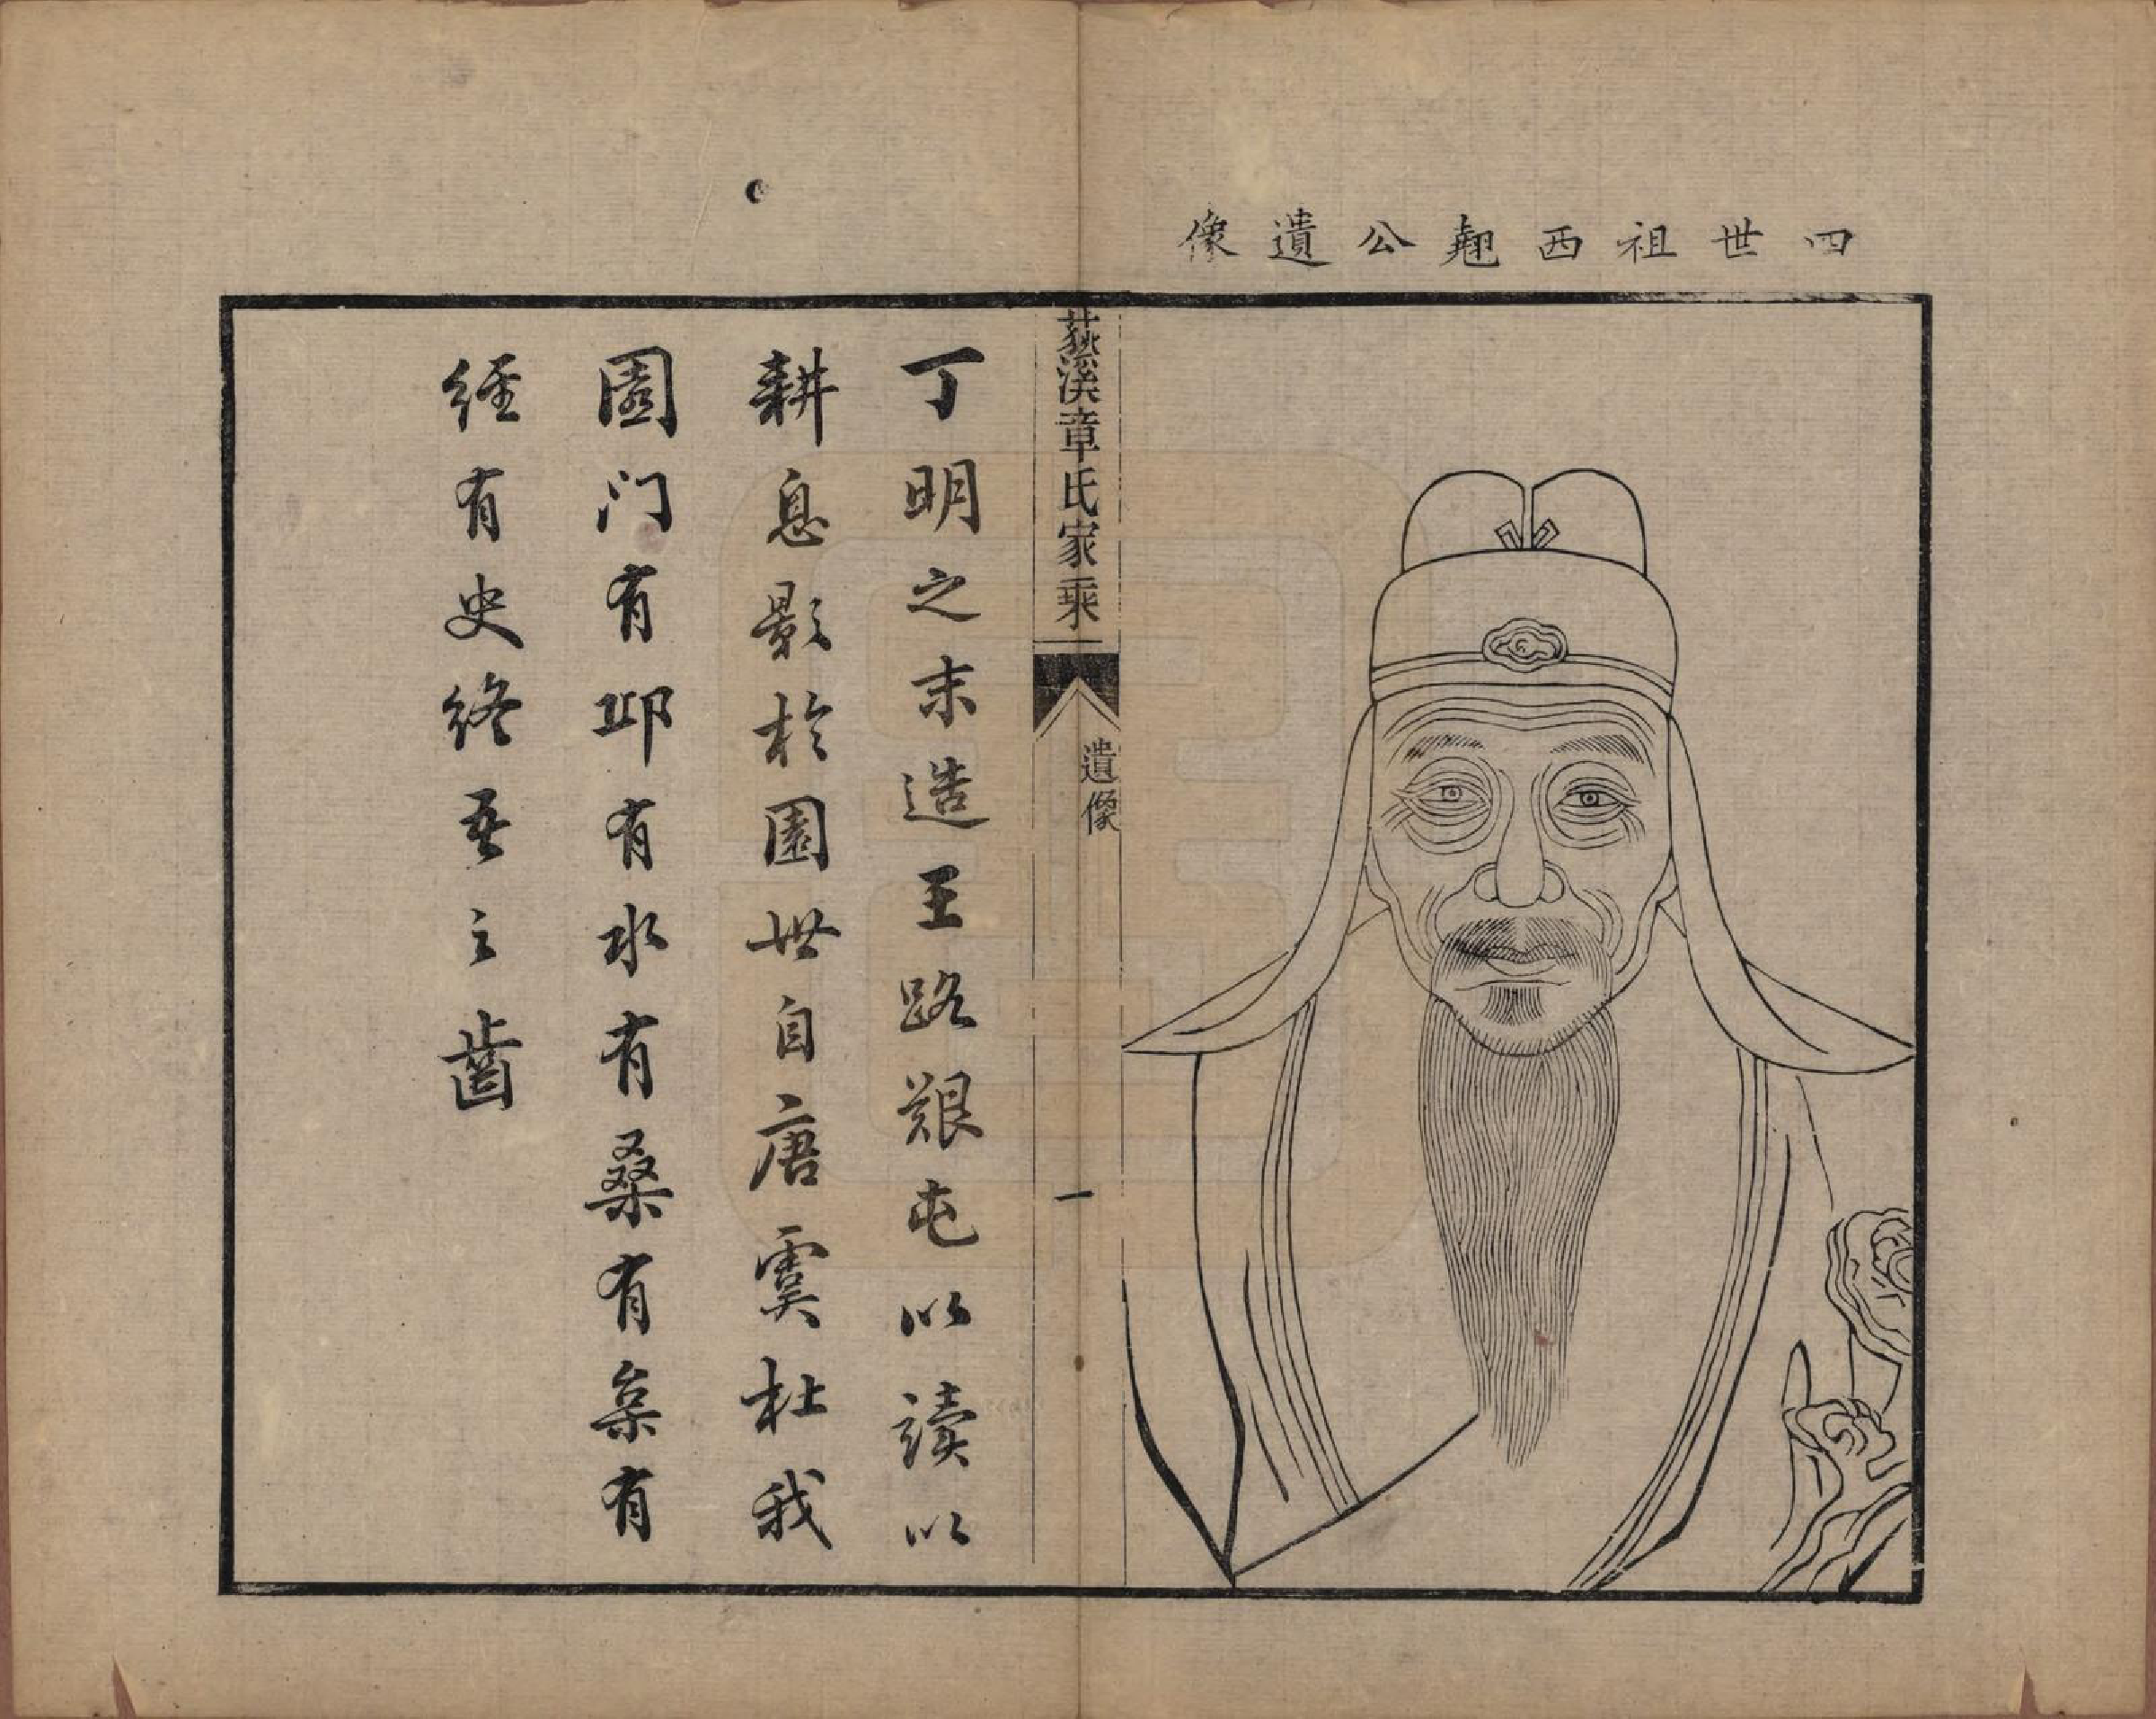 四世祖西翹公遺像
荻溪章氏家乘
遺像
一
丁明之末造王路艱屯以讀以
耕息影於園世自唐虞杜我
園门有邛有水有桑有枲有
經有史終吾之齒